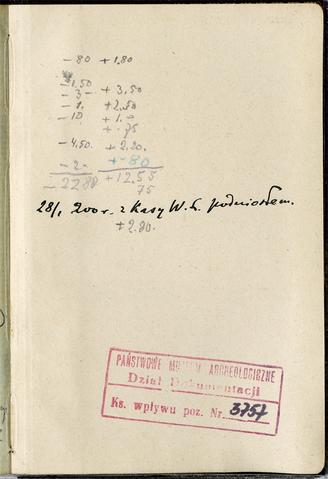 -80 +1.80
-1.50
-3- +3.50
-1. +2.80
-10 +1.=
+.75
-4.50. +2.20.
-2- +-80
-22.80 +12.55
75
28/I 200 r. z Kasy W. S. podniosłem.
+2.80.
PAŃSTWOWE MUZEUM ARCHEOLOGICZNE
Dział Dokumentacji
Ks. wpływu poz. Nr. 3757